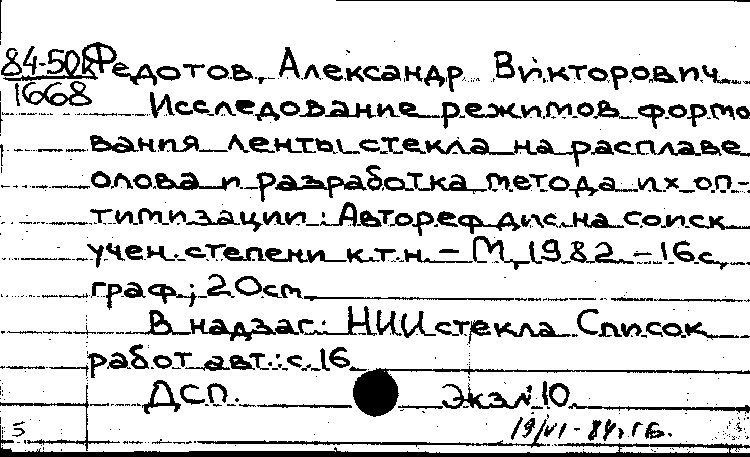 84-50к Федотов, Александр Викторович
1668 Исследование режимов формо
вания ленты стекла на расплаве
олова и разработка метода их оп-
тимизации: Автореф дис. на соиск
учен. степени к.т.н. – М, 1982. – 16 с,
граф; 20 см.
В надзаг: НИИ стекла Список
работ авт.: с. 16
ДСП. Экз № 10.
5 19/VI-84г.